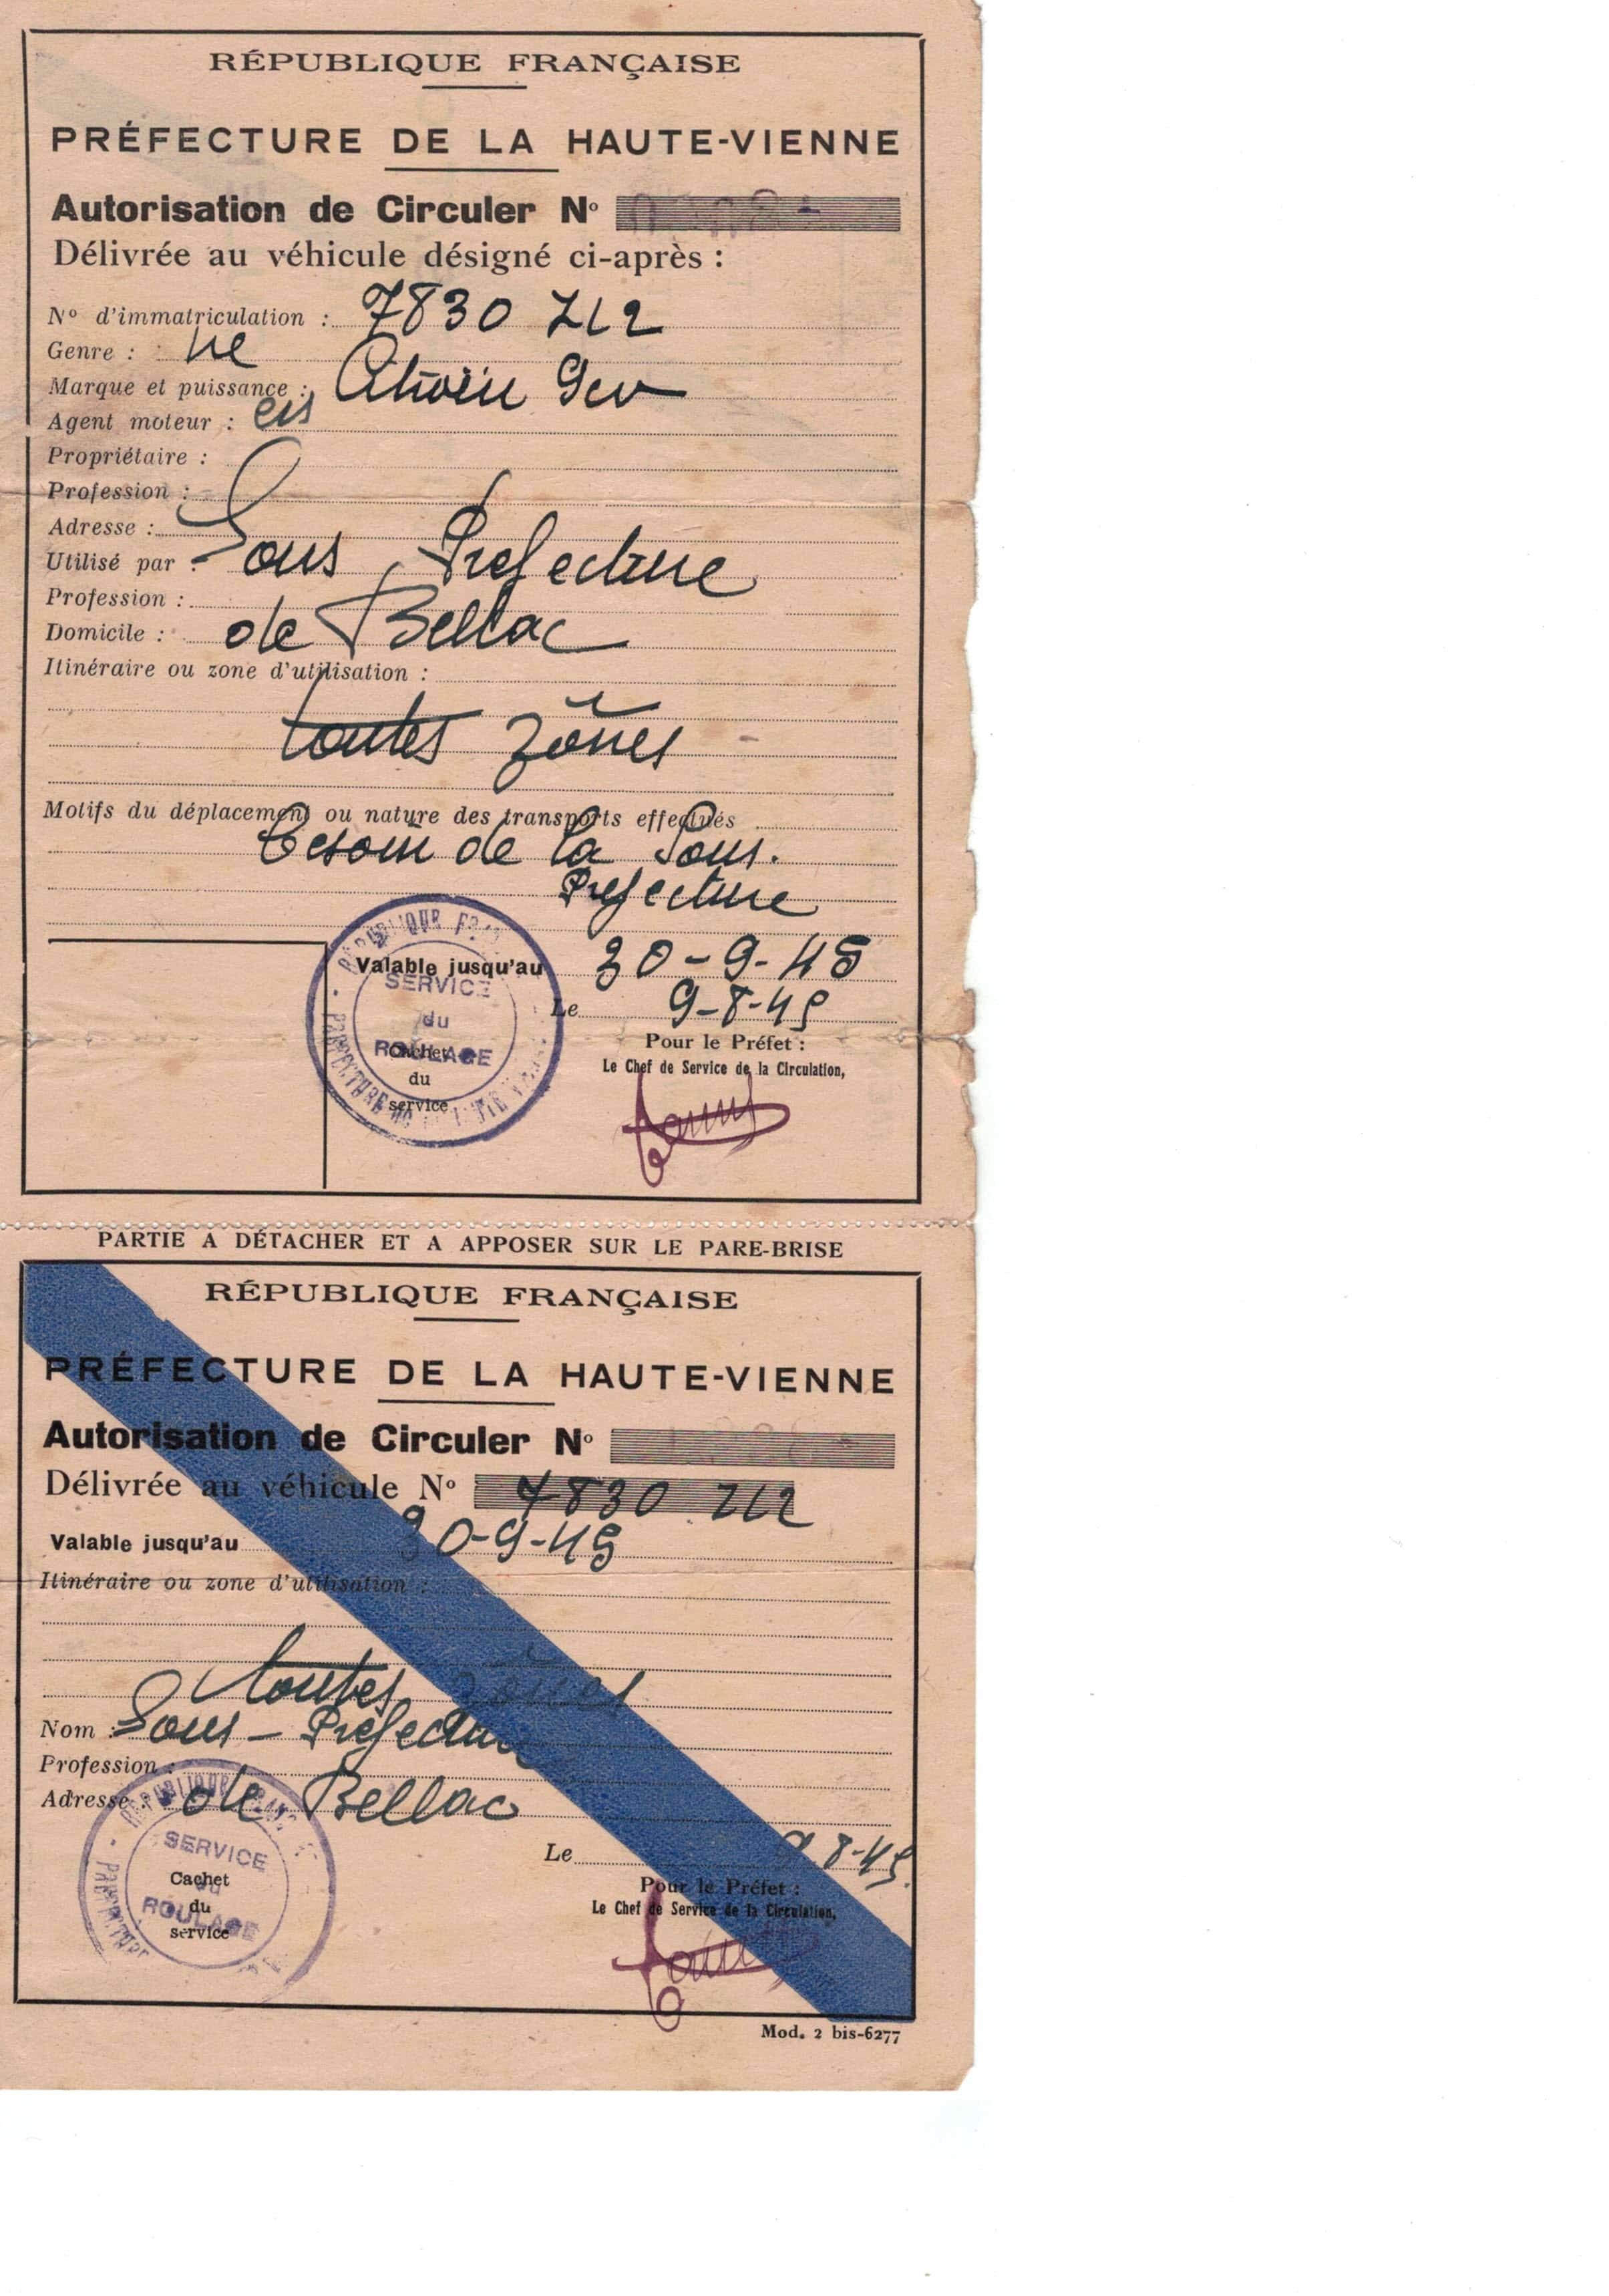 RÉPUBLIQUE FRANÇAISE
PRÉFECTURE DE LA HAUTE-VIENNE
Autorisation de Circuler N°
Délivrée au véhicule désigné ci-après :
N° d'immatriculation : 7830 ZL2
Genre :
Marque et puissance : Citroën 9cv
Agent moteur : ess
Propriétaire :
Profession :
Adresse :
Utilisé par : Sous Préfecture
Profession :
Domicile : de Bellac
Itinéraire ou zone d'utilisation :
toutes zônes
Motifs du déplacement ou nature des transports effectués
besoin de la Sous.
Préfecture
Valable jusqu'au 30-9-45
Le 9-8-45
RÉPUBLIQUE
SERVICE
du
ROULAGE
PRÉFECTURE DE
Cachet
du
service
Pour le Préfet :
Le Chef de Service de la Circulation,
PARTIE A DÉTACHER ET A APPOSER SUR LE PARE-BRISE
RÉPUBLIQUE FRANÇAISE
PRÉFECTURE DE LA HAUTE-VIENNE
Autorisation de Circuler N°
Délivrée au véhicule N° 7830 ZL2
Valable jusqu'au 30-9-45
Itinéraire ou zone d'utilisation :
toutes zônes
Nom : Sous-Préfecture
Profession :
Adresse : de Bellac
RÉPUBLIQUE
SERVICE
du
ROULAGE
PRÉFECTURE
Cachet
du
service
Le 9.8-45.
Pour le Préfet :
Le Chef de Service de la Circulation,
Mod. 2 bis-6277